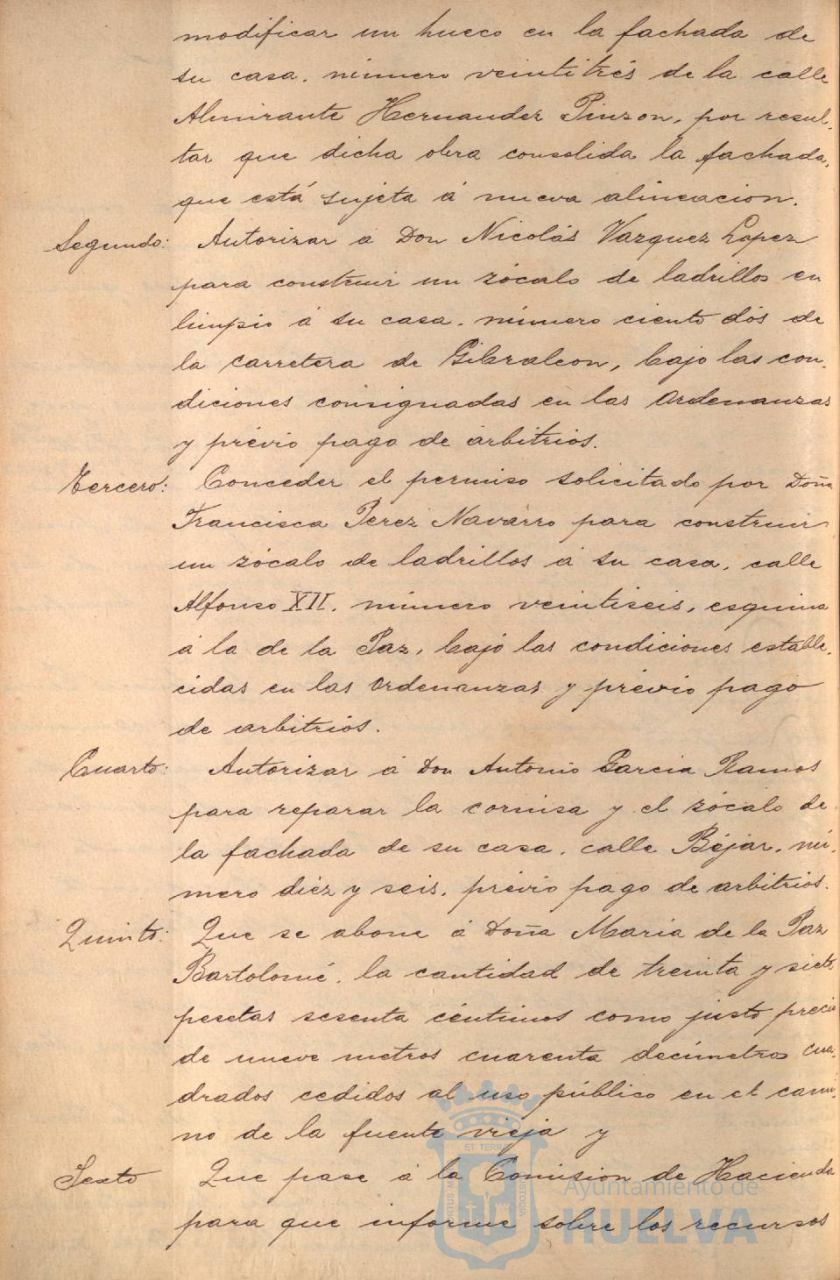 modificar un hueco en la fachada de
su casa, número veintitrés de la calle
Almirante Hernandez Pinzon, por resul-
tar que dicha obra consolida la fachada,
que está sujeta á nueva alineacion.
Segundo: Autorizar á Don Nicolás Vazquez Lopez
para construir un zócalo de ladrillos en
limpio á su casa, número ciento dós de
la carretera de Gibraleon, bajo las con-
diciones consignadas en las Ordenanzas
y prévio pago de árbitrios.
Tercero: Conceder el permiso solicitado por Doña
Francisca Perez Navarro para construir
un zócalo de ladrillos á su casa, calle
Alfonso XII, número veintiseis, esquina
á la de la Paz, bajo las condiciones estable-
cidas en las Ordenanzas y prévio pago
de arbitrios.
Cuarto: Autorizar á Don Antonio Garcia Ramos
para reparar la cornisa y el zócalo de
la fachada de su casa, calle Béjar, nú-
mero diéz y seis, prévio pago de arbitrios.
Quinto: Que se abone á Doña Maria de la Paz
Bartolomé, la cantidad de treinta y siete
pesetas sesenta céntimos como justo precio
de nueve metros cuarenta decímetros cua-
drados cedidos al uso público en el cami-
no de la fuente vieja y
Sexto Que pase á la Comision de Hacienda
para que informe sobre los recursos
Ayuntamiento de
HUELVA